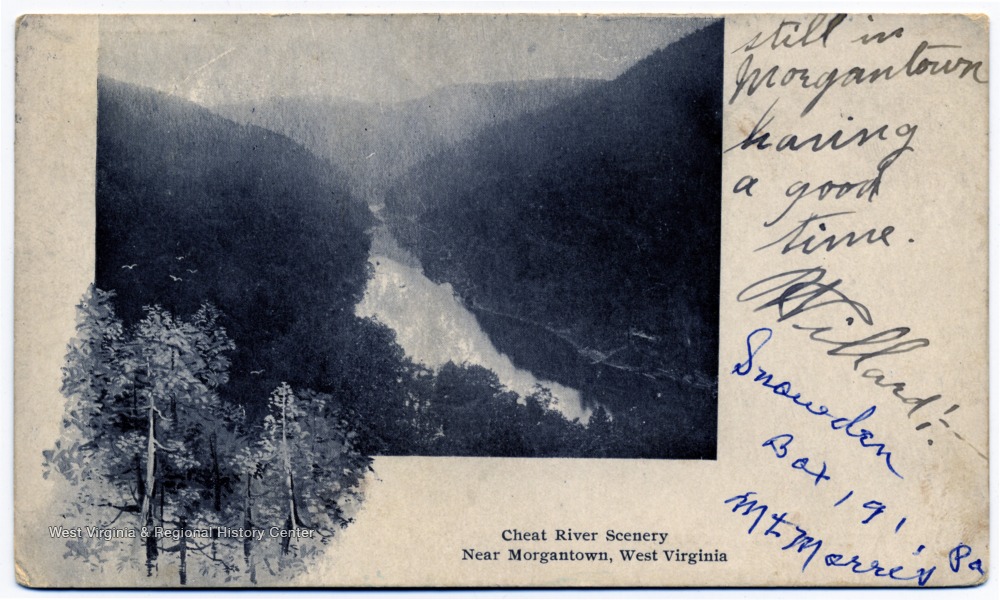 still in
Morgantown
having
a good
time.
Willard!
Snowden
Box 191
Mt Morris Pa
West Virginia & Regional History Center
Cheat River Scenery
Near Morgantown, West Virginia